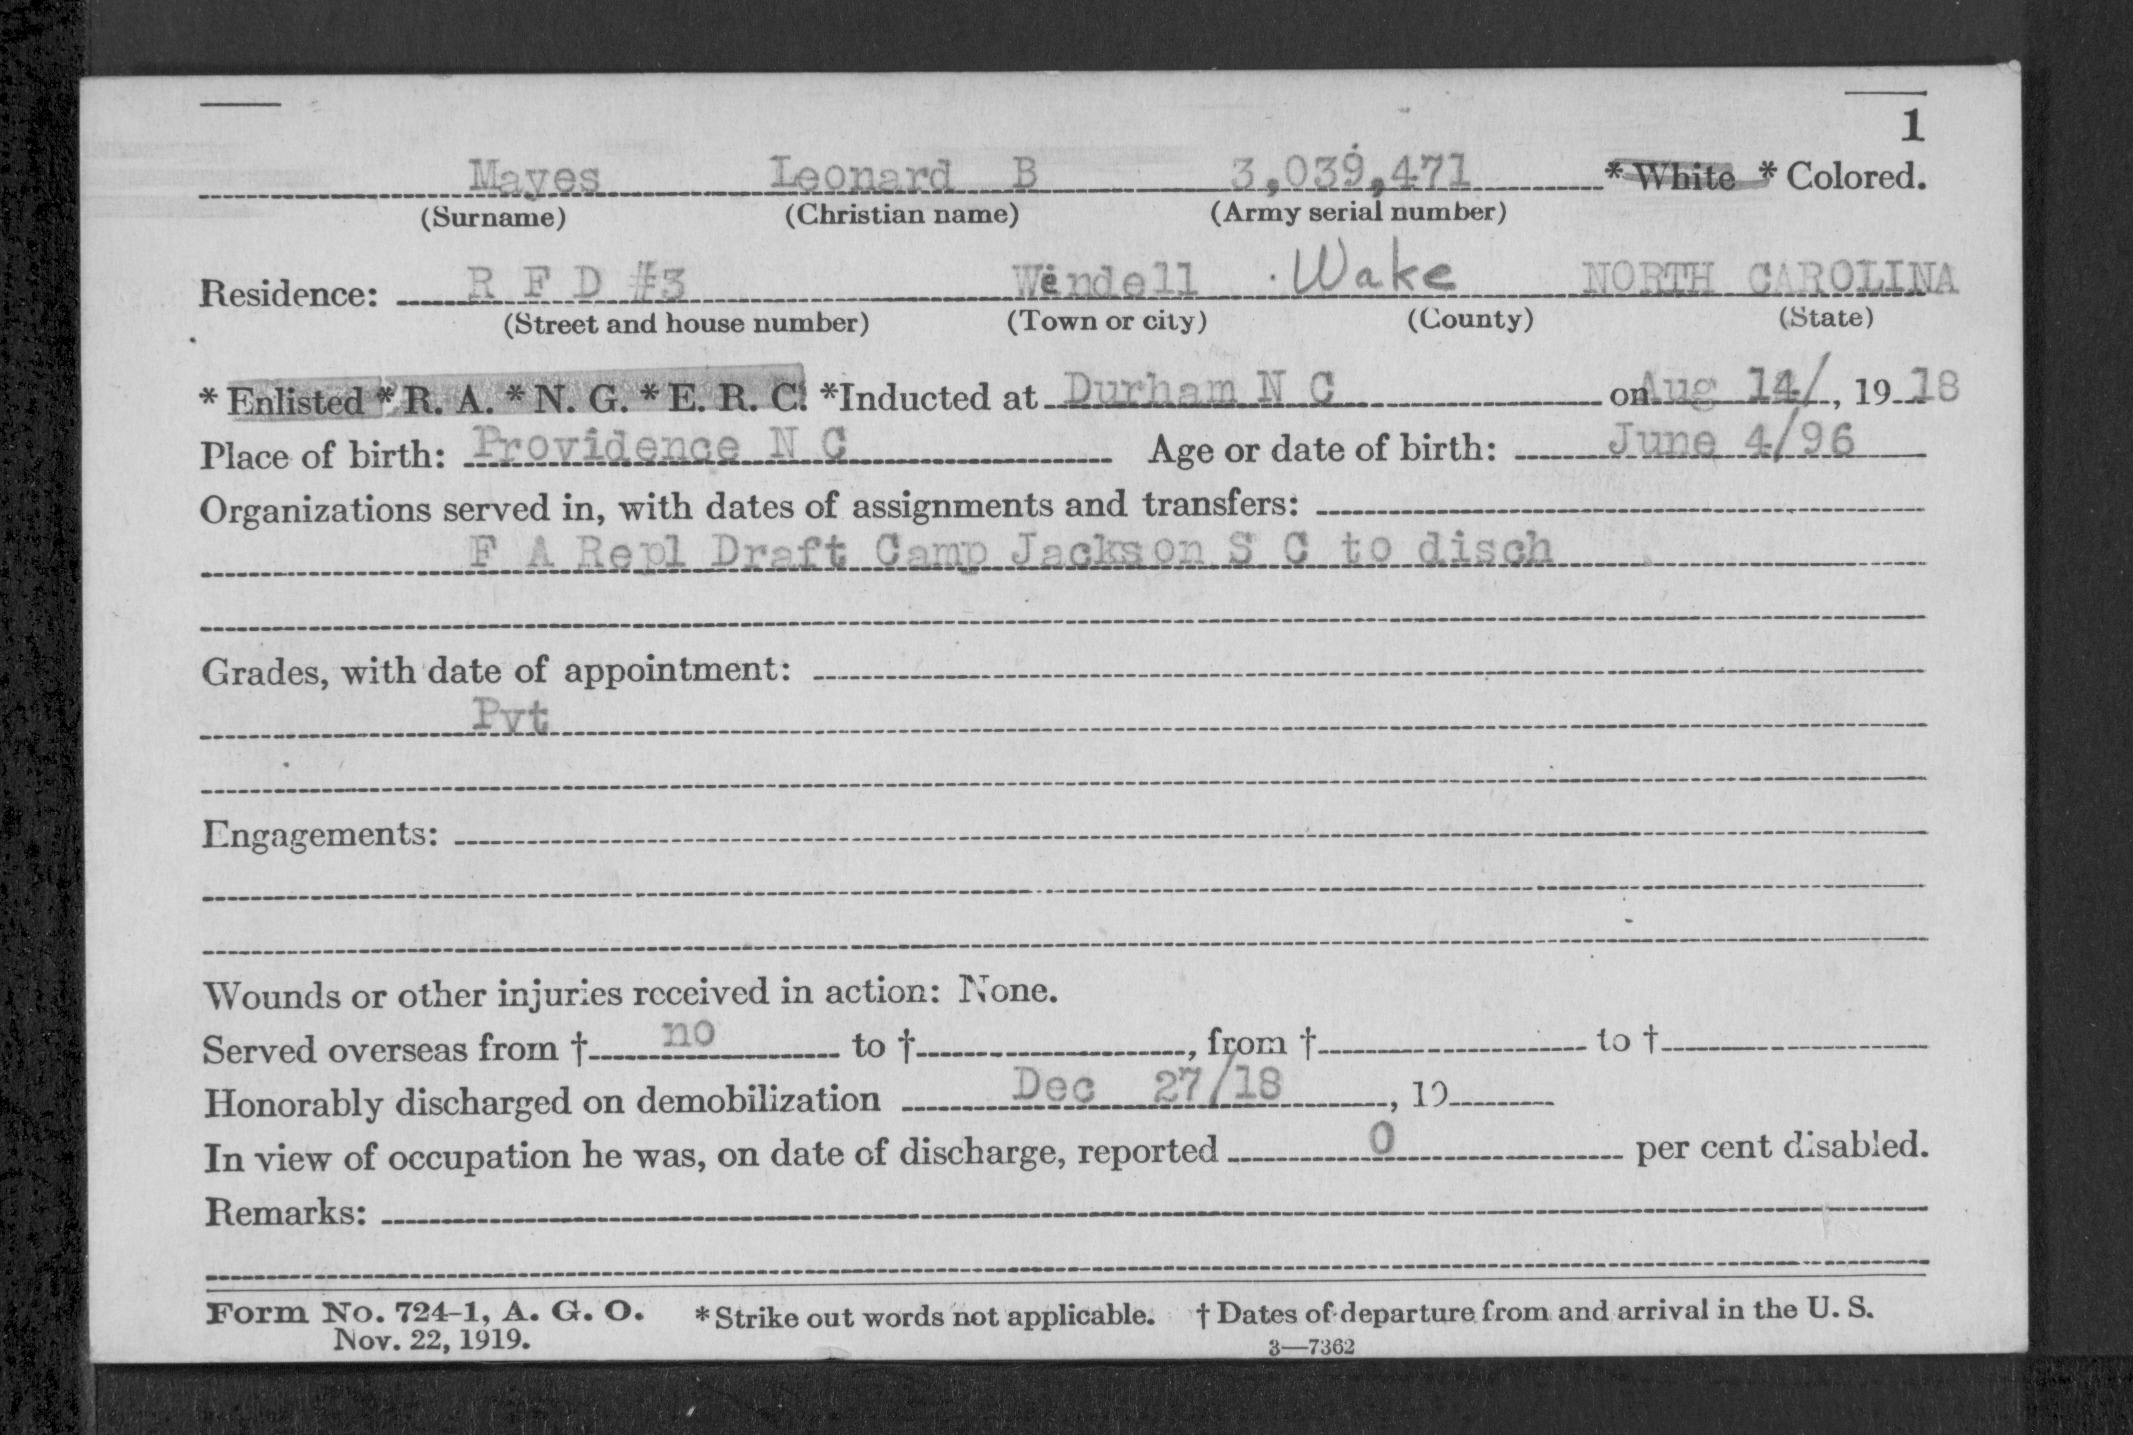 1
Mayes Leonard B 3,039,471 * White * Colored.
(Surname) (Christian name) (Army serial number)
Residence: R F D #3 Wendell Wake NORTH CAROLINA
(Street and house number) (Town or city) (County) (State)
* Enlisted * R. A. * N. G. * E. R. C. *Inducted at Durham N C on Aug 14/, 19 18
Place of birth: Providence N C Age or date of birth: June 4/96
Organizations served in, with dates of assignments and transfers:
F A Repl Draft Camp Jackson S C to disch
Grades, with date of appointment:
Pvt
Engagements:
Wounds or other injuries received in action: None.
Served overseas from † no to †, from † to †
Honorably discharged on demobilization Dec 27/18, 19
In view of occupation he was, on date of discharge, reported 0 per cent disabled.
Remarks:
Form No. 724-1, A. G. O. * Strike out words not applicable. † Dates of departure from and arrival in the U. S.
Nov. 22, 1919. 3—7362